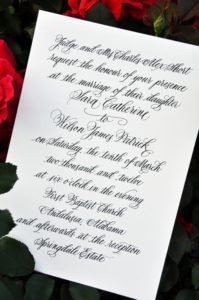 Judge and Mrs Charles Alex Short
request the honour of your presence
at the marriage of their daughter
Sara Catherine
to
Wilson James Patrick
on Saturday, the tenth of March
two thousand and twelve
at six o'clock in the evening
First Baptist Church
Andalusia, Alabama
and afterwards at the reception
Springdale Estate